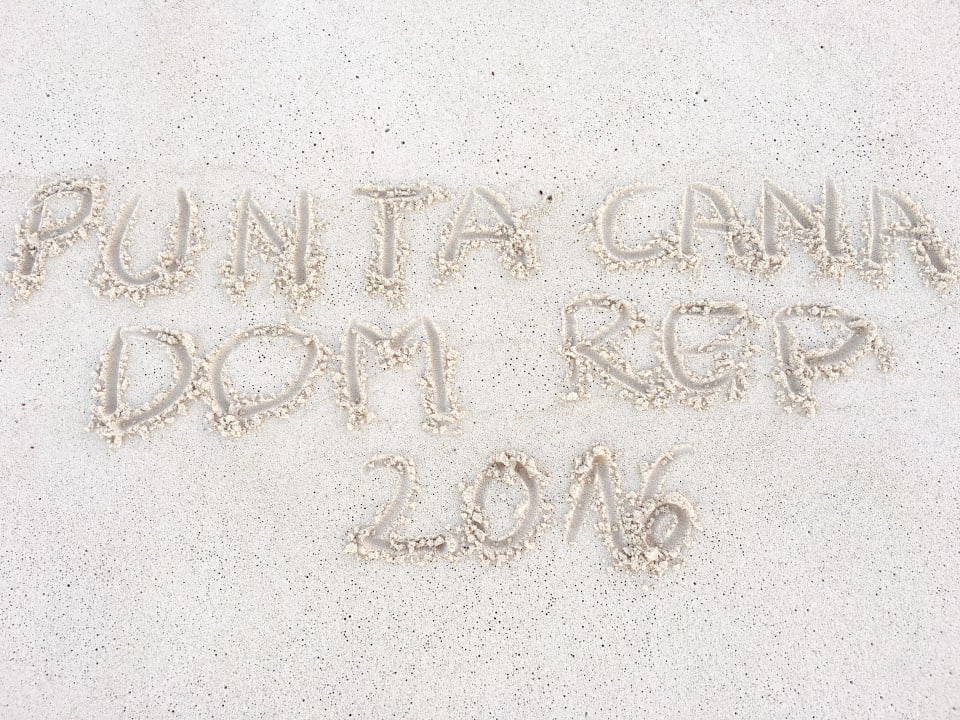 PUNTA CANA
DOM REP
2016